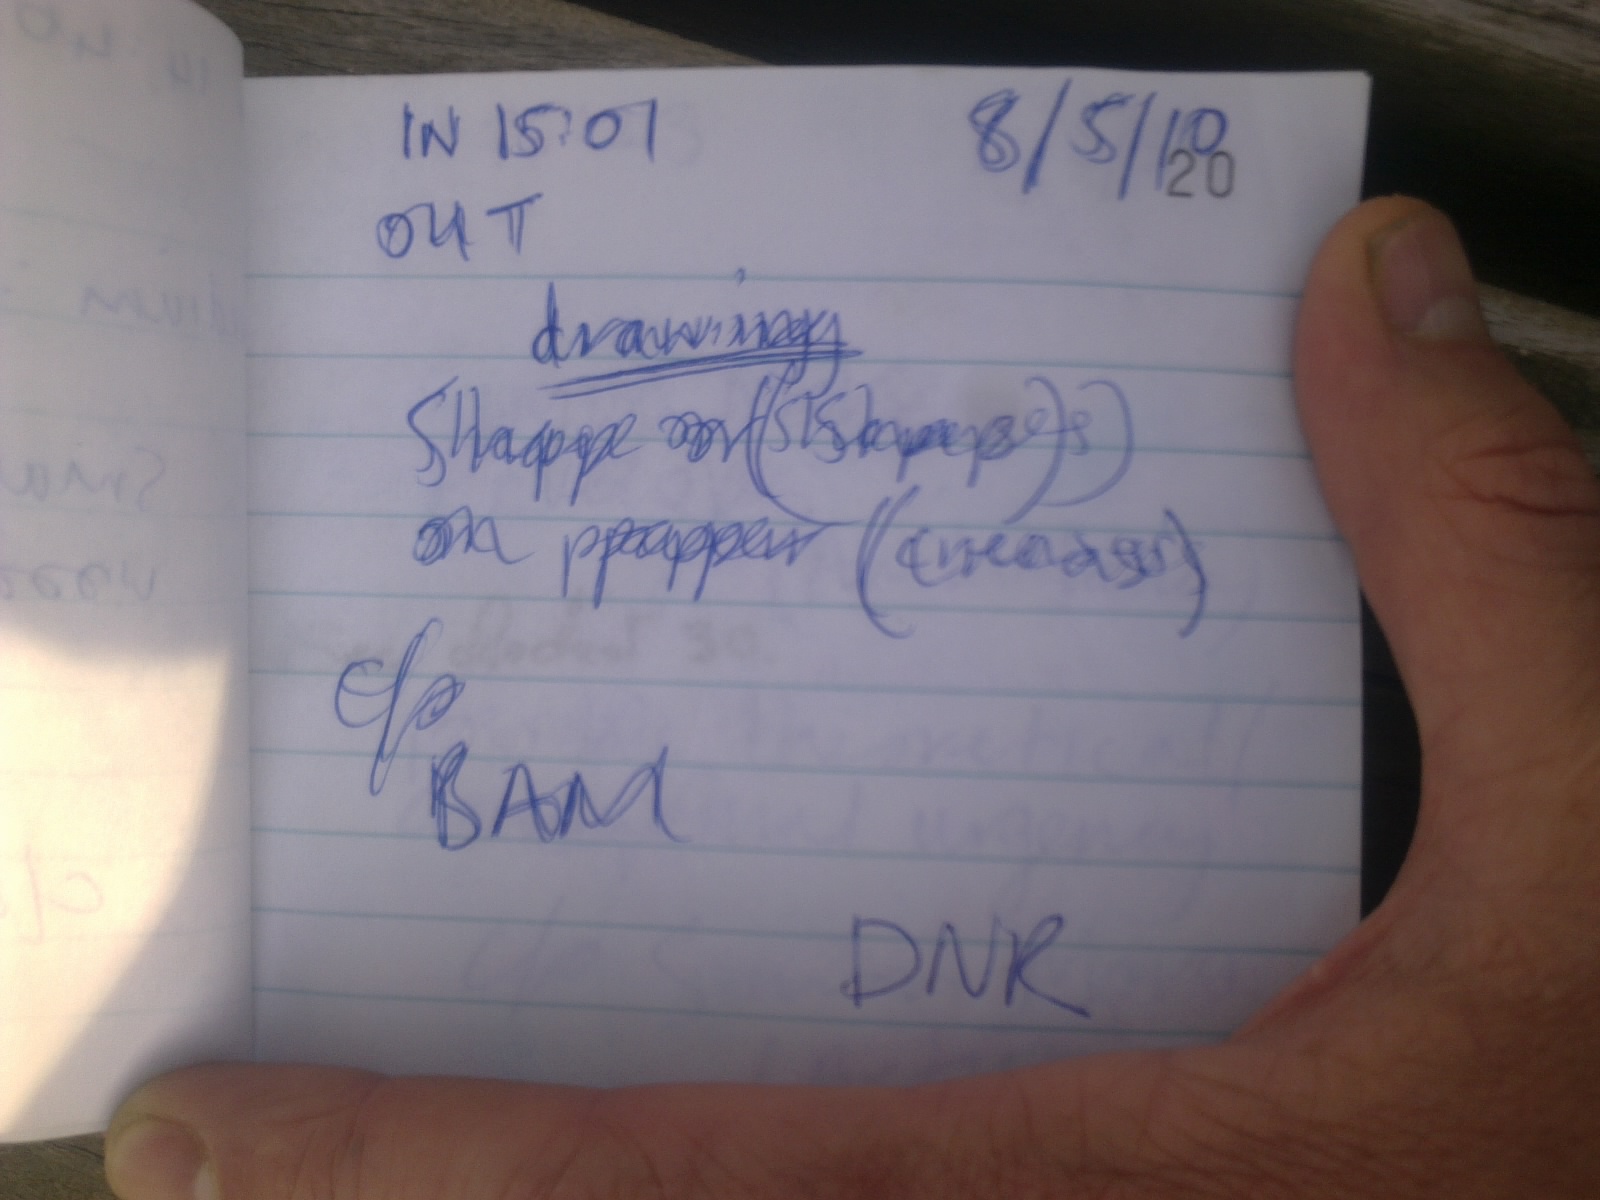 IN 15:01 8/5/10
20
OUT
drawing
Shape or (Shapes)
on paper
c/o
BAM
DNR